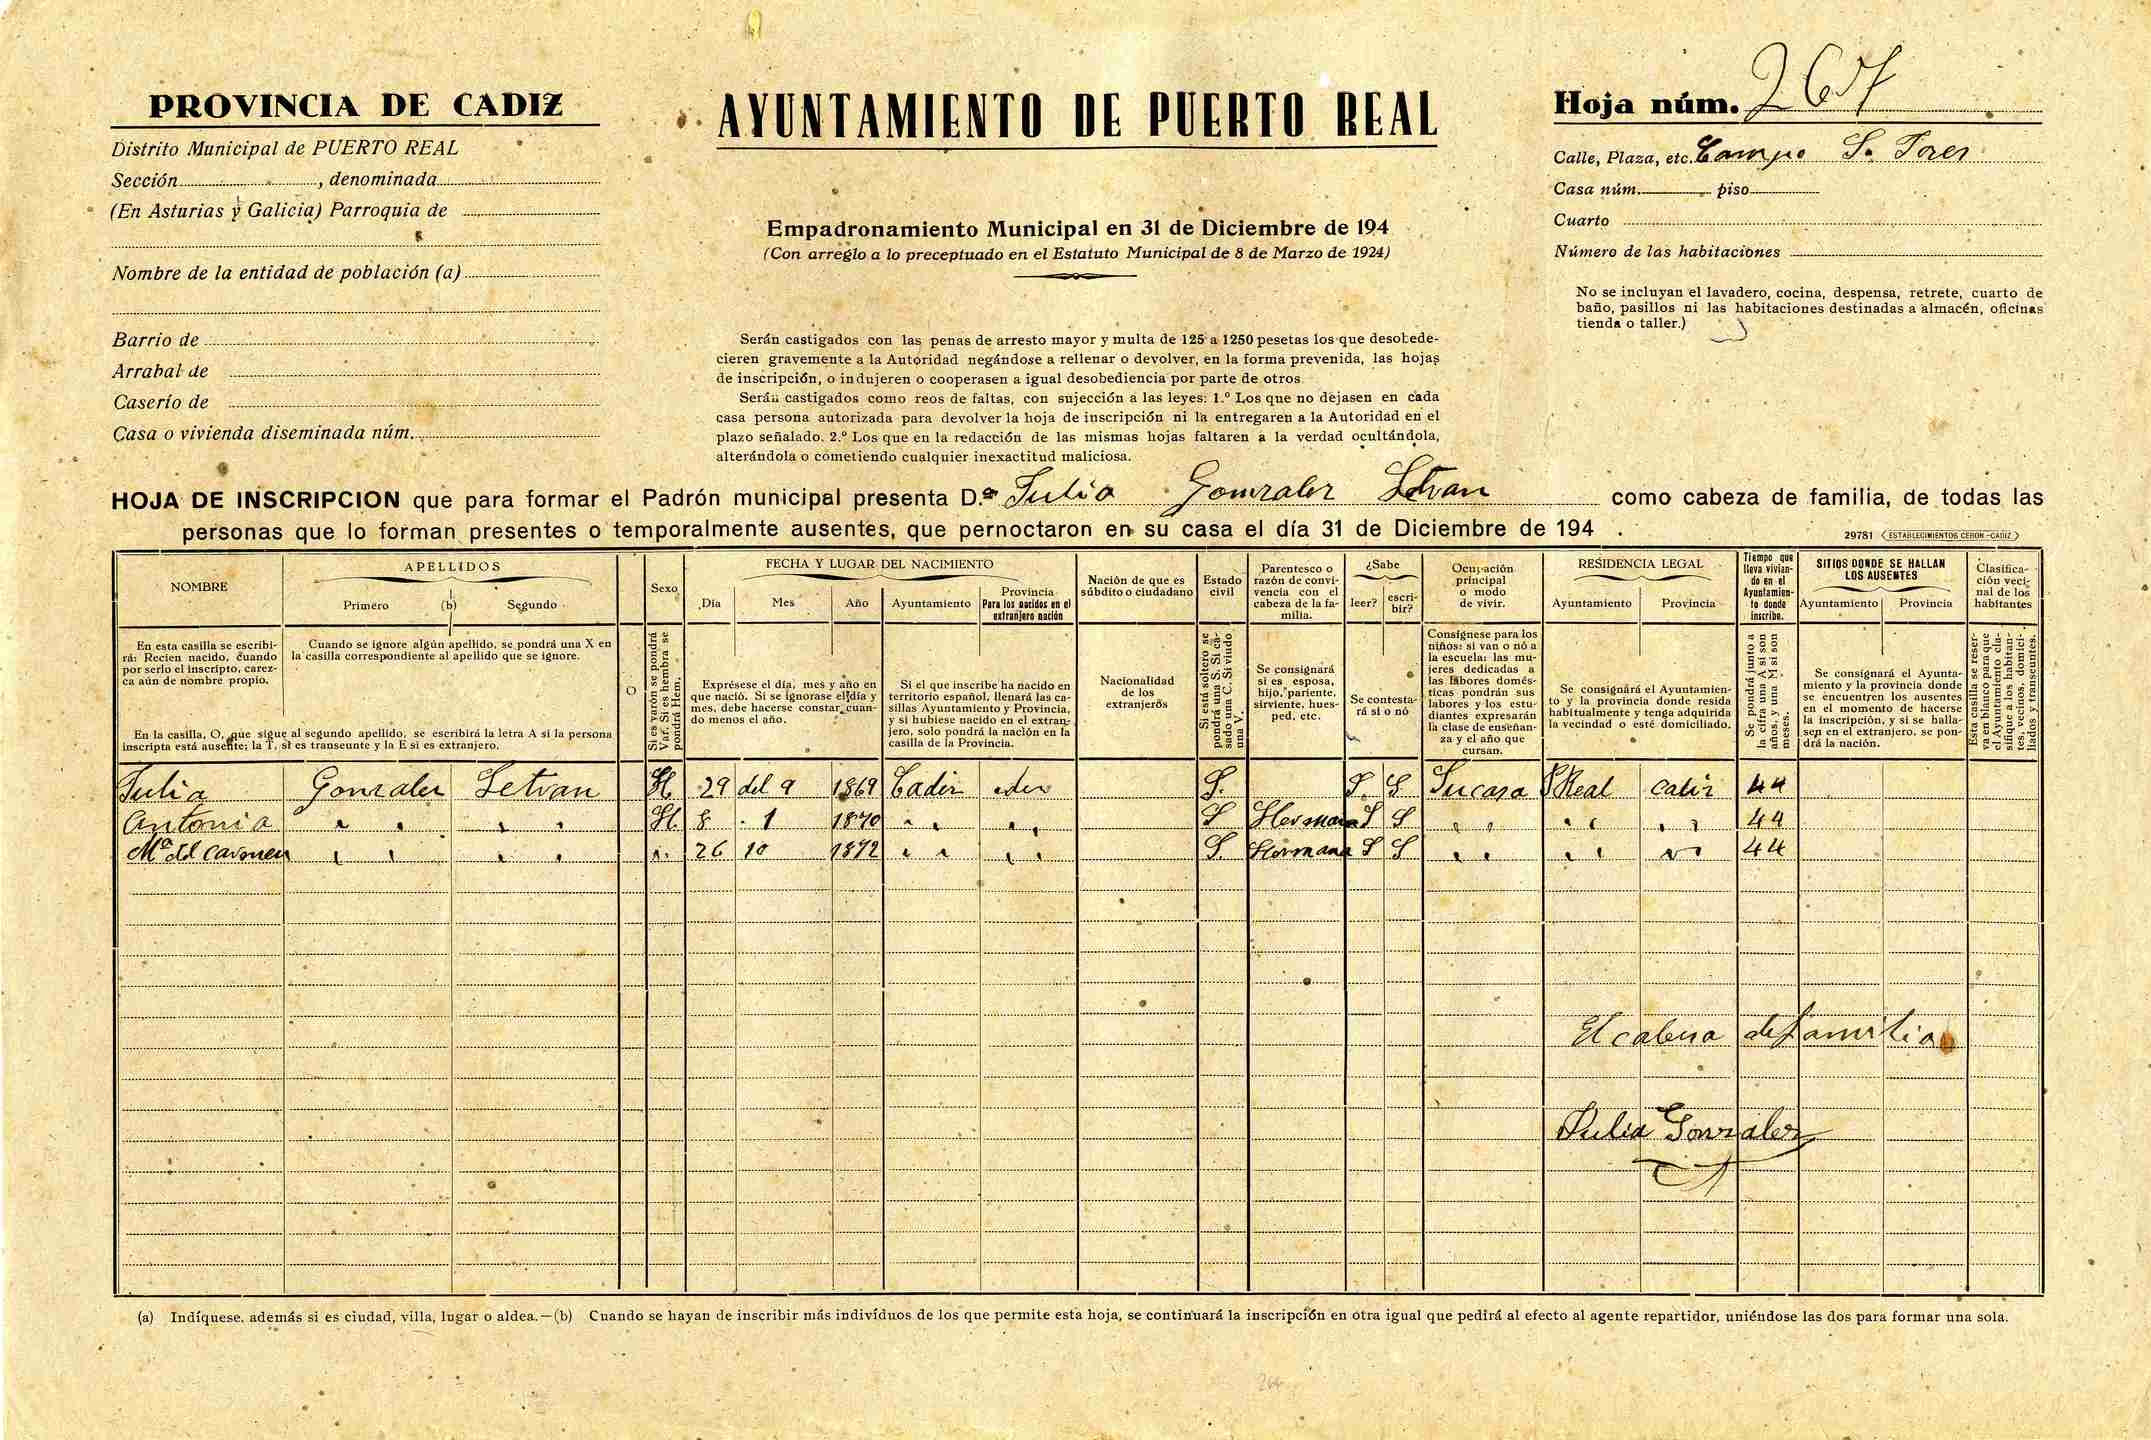 PROVINCIA DE CADIZ
Distrito Municipal de PUERTO REAL
Sección , denominada
(En Asturias y Galicia) Parroquia de
Nombre de la entidad de población (a)
Barrio de
Arrabal de
Caserío de
Casa o vivienda diseminada núm.
AYUNTAMIENTO DE PUERTO REAL
Empadronamiento Municipal en 31 de Diciembre de 194
(Con arreglo a lo preceptuado en el Estatuto Municipal de 8 de Marzo de 1924)
Serán castigados con las penas de arresto mayor y multa de 125 a 1250 pesetas los que desobede-
cieren gravemente a la Autoridad negándose a rellenar o devolver, en la forma prevenida, las hojas
de inscripción, o indujeren o cooperasen a igual desobediencia por parte de otros.
Serán castigados como reos de faltas, con sujección a las leyes: 1.º Los que no dejasen en cada
casa persona autorizada para devolver la hoja de inscripción ni la entregaren a la Autoridad en el
plazo señalado. 2.º Los que en la redacción de las mismas hojas faltaren a la verdad ocultándola,
alterándola o cometiendo cualquier inexactitud maliciosa.
Hoja núm. 267
Calle, Plaza, etc. Campo S.
Casa núm. piso
Cuarto
Número de las habitaciones
No se incluyan el lavadero, cocina, despensa, retrete, cuarto de
baño, pasillos ni las habitaciones destinadas a almacén, oficinas
tienda o taller.)
HOJA DE INSCRIPCION que para formar el Padrón municipal presenta D.ª Julia Gonzalez Letran como cabeza de familia, de todas las
personas que lo forman presentes o temporalmente ausentes, que pernoctaron en su casa el día 31 de Diciembre de 194 .
29781 (ESTABLECIMIENTOS CERON-CADIZ)
NOMBRE
En esta casilla se escribi-
rá: Recien nacido, cuando
por serlo el inscripto, carez-
ca aún de nombre propio.
APELLIDOS
Primero (b) Segundo
Cuando se ignore algún apellido, se pondrá una X en
la casilla correspondiente al apellido que se ignore.
En la casilla, O, que sigue al segundo apellido, se escribirá la letra A si la persona
inscripta está ausente; la T, si es transeunte y la E si es extranjero.
O
Sexo
Si es varón se pondrá
Var. Si es hembra se
pondrá Hem.
FECHA Y LUGAR DEL NACIMIENTO
Día Mes Año Ayuntamiento
Provincia
Para los nacidos en el
extranjero nación
Exprésese el día, mes y año en
que nació. Si se ignorase el día y
mes, debe hacerse constar cuan-
do menos el año.
Si el que inscribe ha nacido en
territorio español, llenará las ca-
sillas Ayuntamiento y Provincia,
y si hubiese nacido en el extran-
jero, solo pondrá la nación en la
casilla de la Provincia.
Nación de que es
súbdito o ciudadano
Nacionalidad
de los
extranjeros
Estado
civil
Si está soltero se
pondrá una S. Si ca-
sado una C. Si viudo
una V.
Parentesco o
razón de convi-
vencia con el
cabeza de la fa-
milia.
Se consignará
si es esposa,
hijo, pariente,
sirviente, hues-
ped, etc.
¿Sabe
leer? escri-
bir?
Se contesta-
rá si o nó
Ocupación
principal
o modo
de vivir.
Consígnese para los
niños: si van o nó a
la escuela: las mu-
jeres dedicadas a
las labores domés-
ticas pondrán sus
labores y los estu-
diantes expresarán
la clase de enseñan-
za y el año que
cursan.
RESIDENCIA LEGAL
Ayuntamiento Provincia
Se consignará el Ayuntamien-
to y la provincia donde resida
habitualmente y tenga adquirida
la vecindad o esté domiciliado.
Tiempo que
lleva vivien-
do en el
Ayuntamien-
to donde
inscribe.
Se pondrá junto a
la cifra una A si son
años, y una M si son
meses.
SITIOS DONDE SE HALLAN
LOS AUSENTES
Ayuntamiento Provincia
Se consignará el Ayunta-
miento y la provincia donde
se encuentren los ausentes
en el momento de hacerse
la inscripción, y si se halla-
sen en el extranjero, se pon-
drá la nación.
Clasifica-
ción veci-
nal de los
habitantes
Esta casilla se reser-
va en blanco para que
el Ayuntamiento cla-
sifique a los habitan-
tes, vecinos, domici-
liados y transeuntes.
Julia Gonzalez Letran H. 29 del 9 1869 Cadiz S. S. S Su casa P Real Cadiz 44
Antonia " " " " H. 8 1 1870 " " " " S Hermana S S " " " " " " 44
Mª del Carmen " " " " " 26 10 1872 " " " " S. Hermana S S " " " " " " 44
El cabeza de familia
Julia Gonzalez
(a) Indíquese, además si es ciudad, villa, lugar o aldea.—(b) Cuando se hayan de inscribir más indivíduos de los que permite esta hoja, se continuará la inscripción en otra igual que pedirá al efecto al agente repartidor, uniéndose las dos para formar una sola.